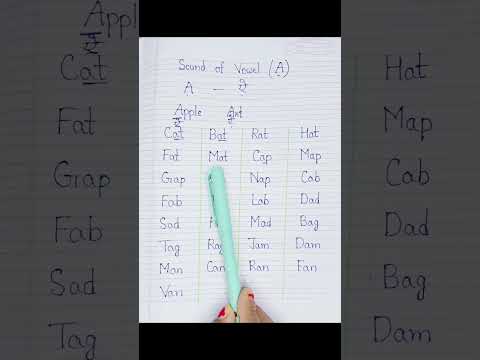 Sound of Vowel (A)
A — ऐ
Apple Ant
ऐ
Cat Bat Rat Hat
Fat Mat Cap Map
Gap Nap Cab
Fab Lab Dad
Sad Mad Bag
Tag Rag Jam Dam
Man Can Ran Fan
Van
Apple
ऐ
Cat
Fat
Gap
Fab
Sad
Tag
Hat
Map
Cab
Dad
Bag
Dam